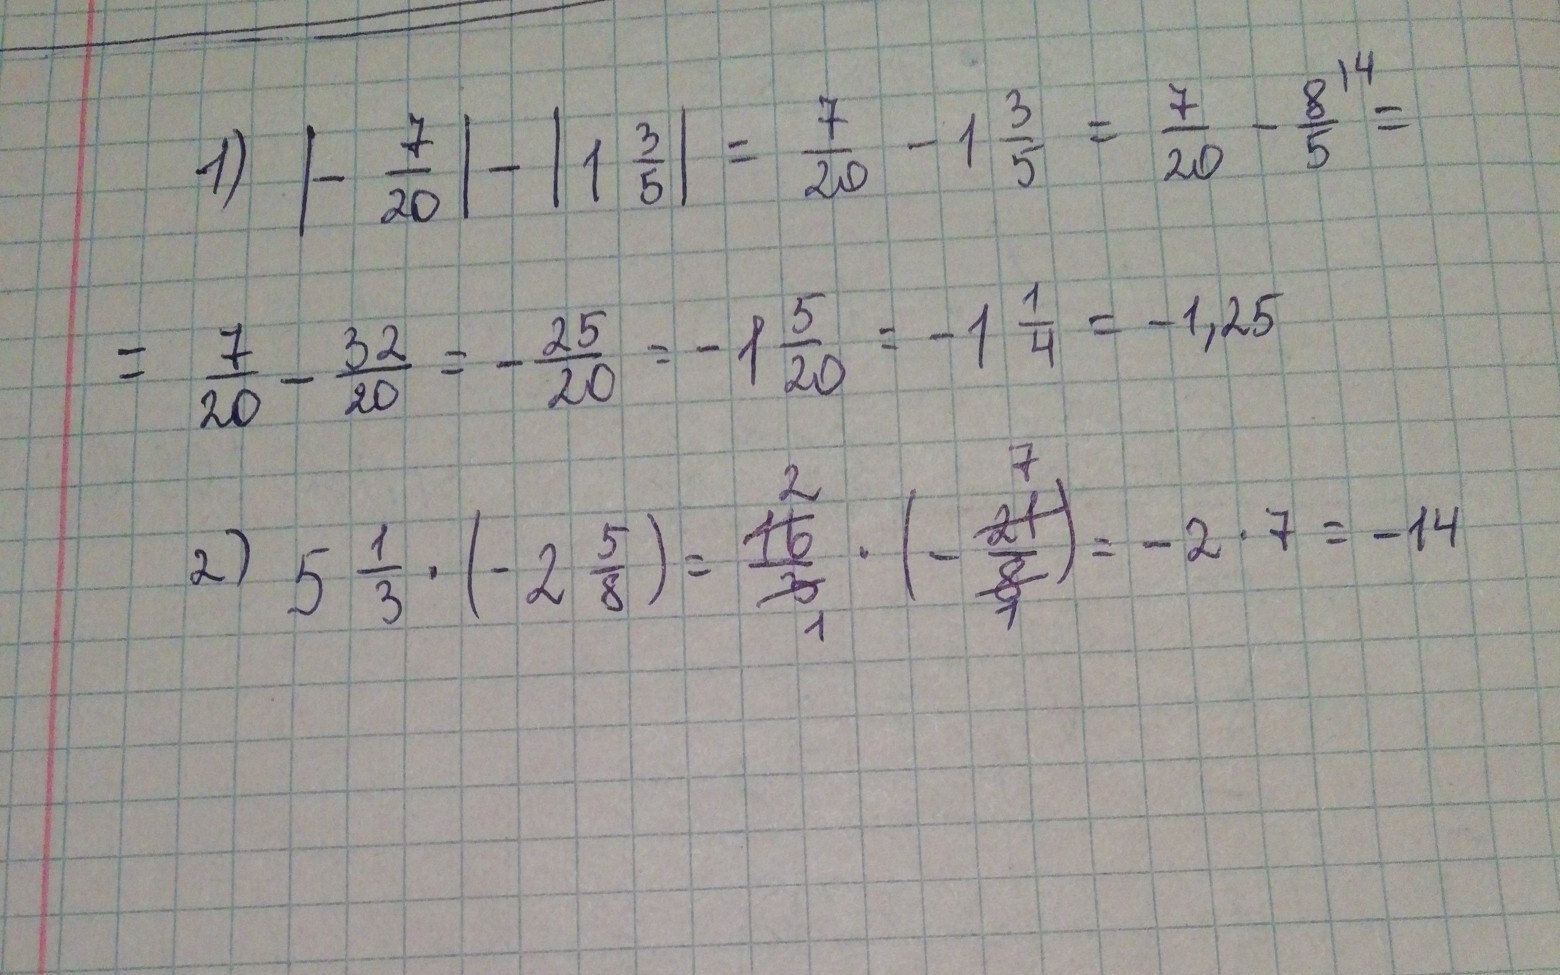 1) |- 7/20| - |1 3/5| = 7/20 - 1 3/5 = 7/20 - 8/5 ^14 =
= 7/20 - 32/20 = - 25/20 = -1 5/20 = -1 1/4 = -1,25
2) 5 1/3 · (-2 5/8) = 16/3 · (- 21/8) = -2 · 7 = -14